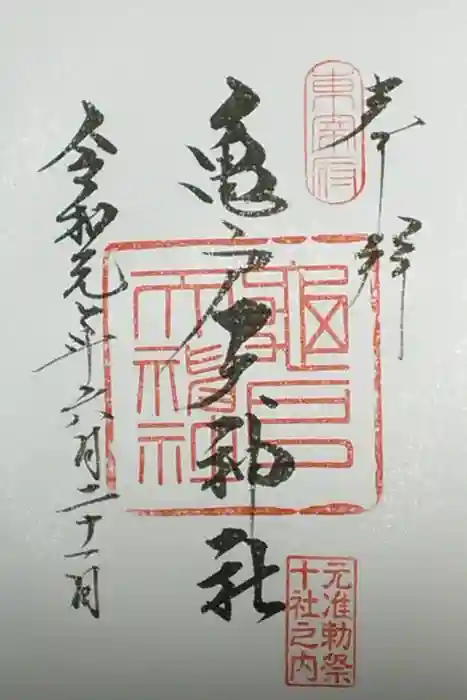 奉拝
東宰府
亀戸天神社
龜戸
天神社
令和元年六月二十一日
元准勅祭
十社之内